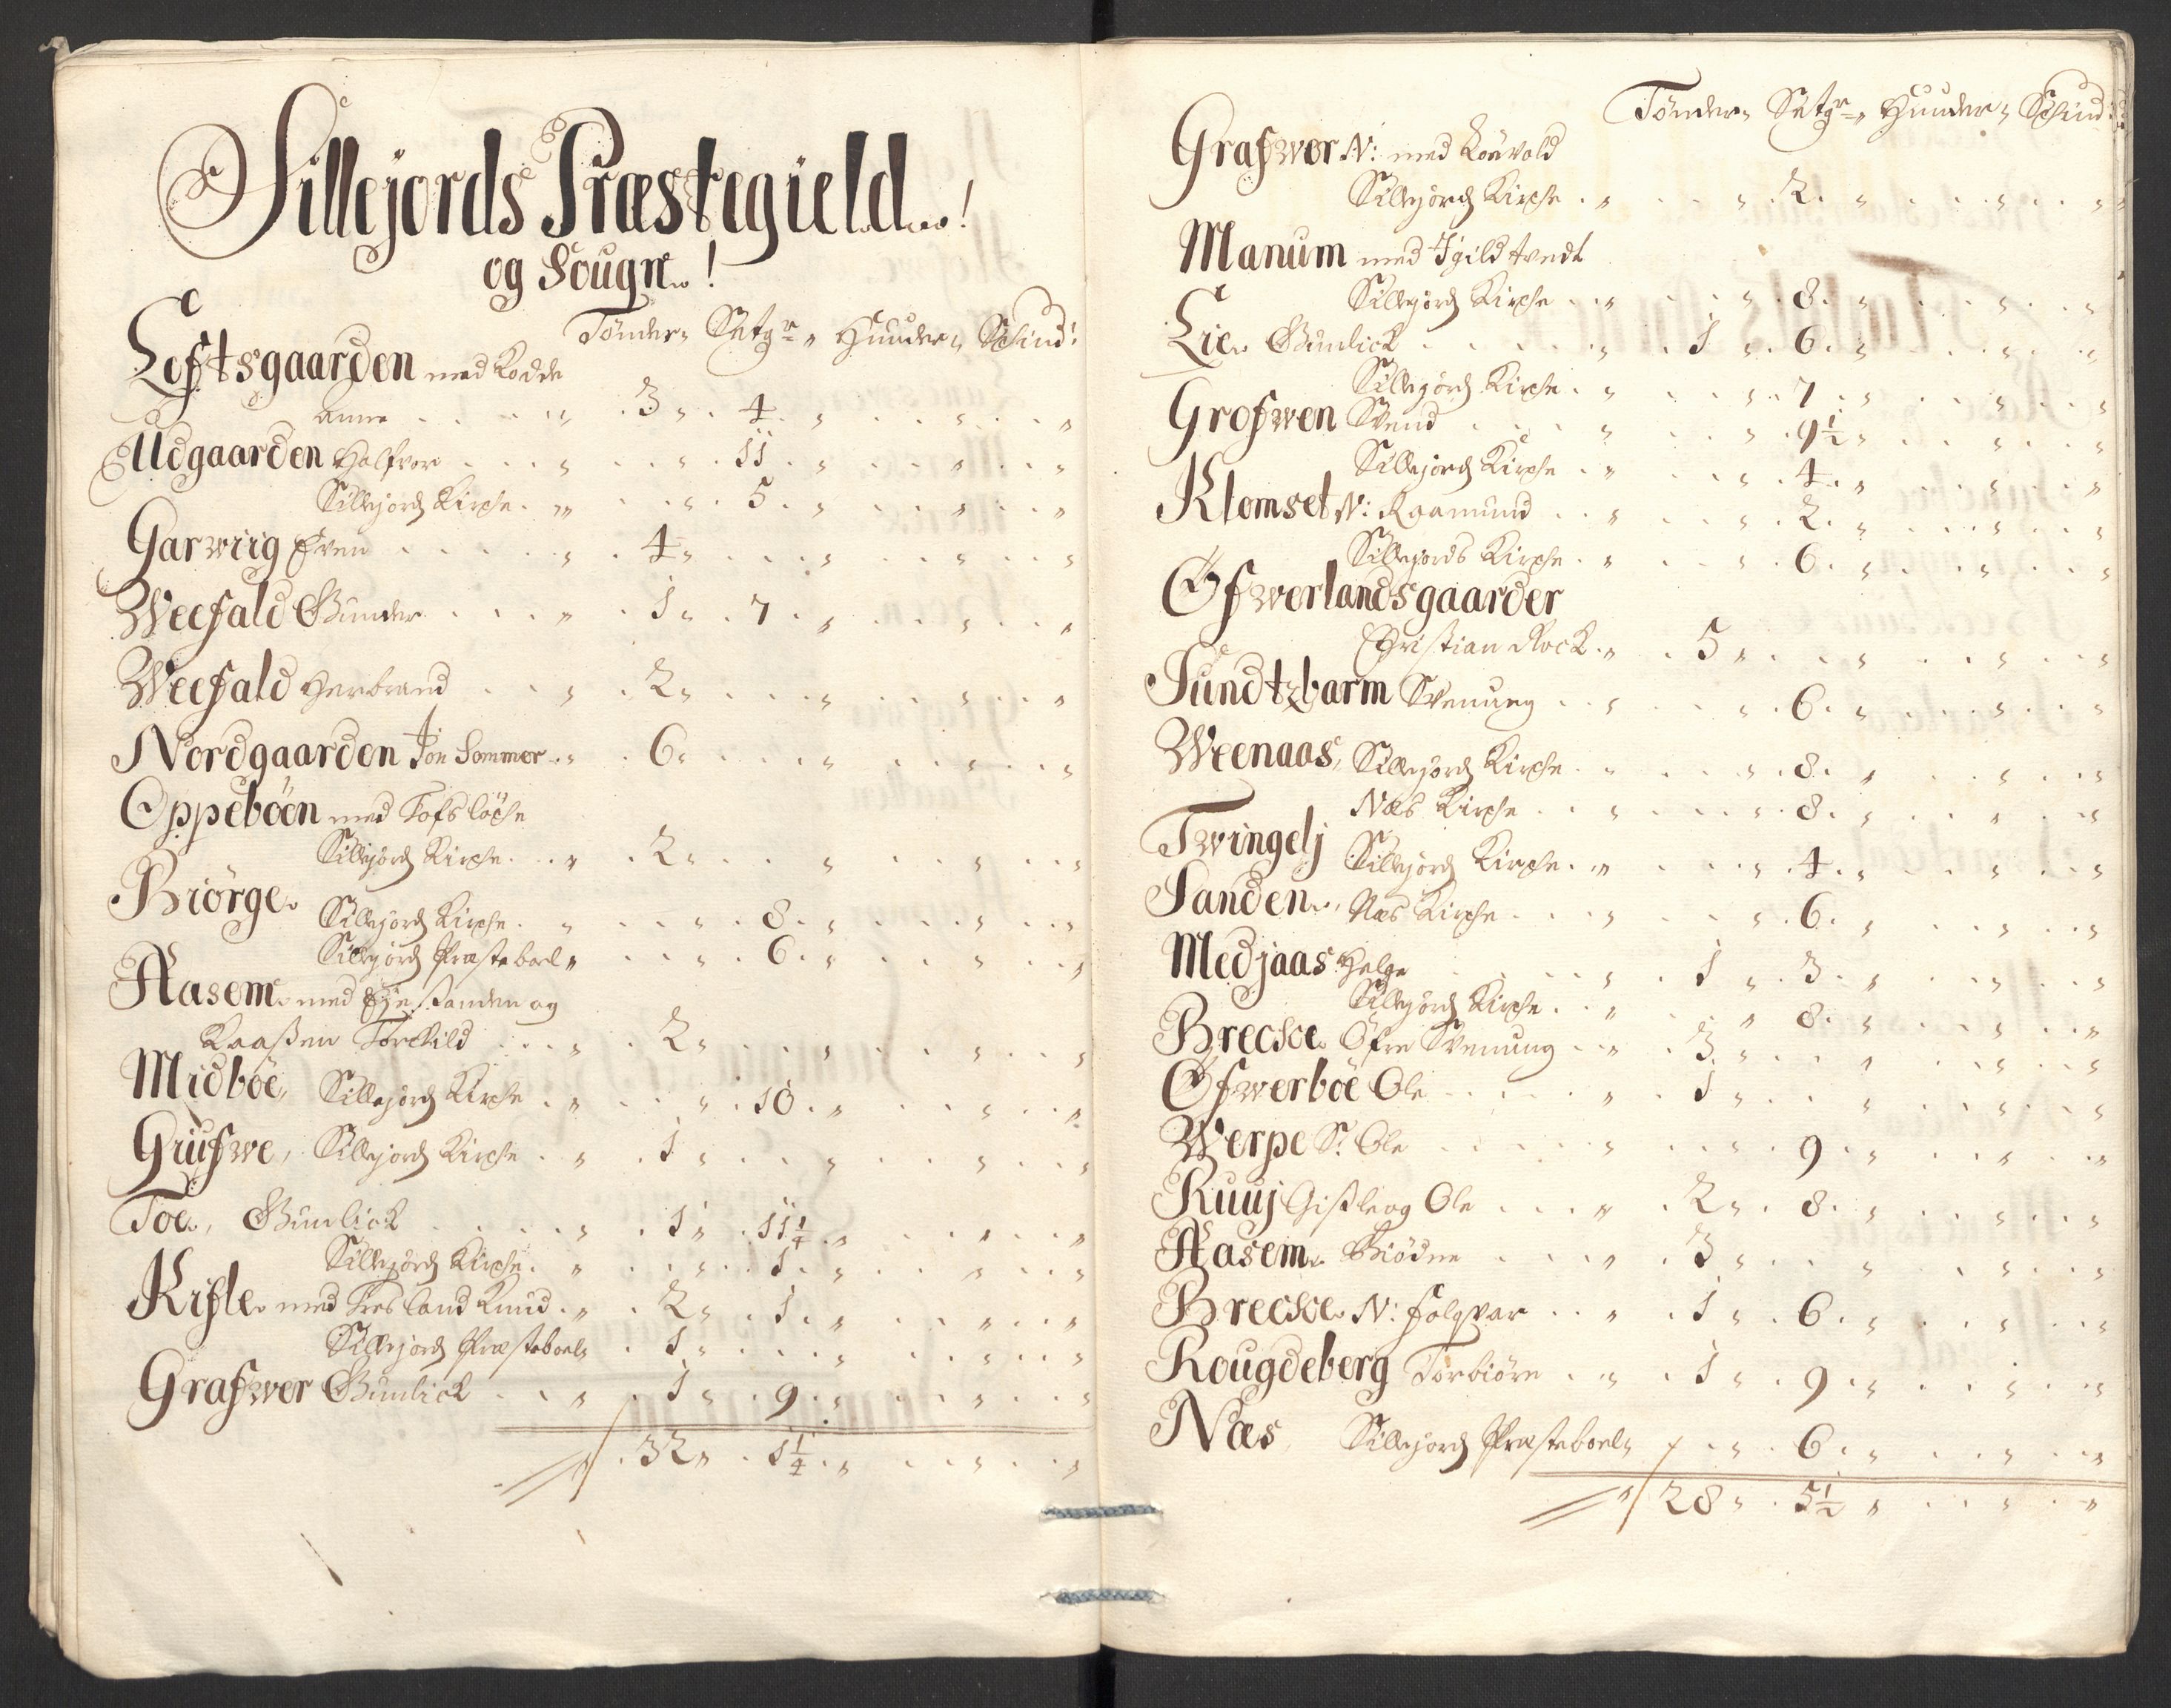 Sillejords Præstegield!
og Sougn!
Tönder, Setgr, Huuder, Schind!
Loftsgaarden med Rodde
Anne 3 4
Udgaarden Halfvor 11
Sillejords Kirche 5
Garwiig Even 4
Weefald Gunder 1 7
Weefald Herbrand 2
Nordgaarden Jon Sommer 6
Oppeböen med Tofslöche
Sillejords Kirche 2
Biörge
Sillejords Kirche 8
Sillejords Præsteboel 6
Aasem med
Torckild 2
Midböe, Sillejords Kirche 10
Griufwe, Sillejords Kirche 1
Toe, Gunlick 1 11¼
Sillejords Kirche 1
Kifle med Knud 2 1
Sillejords Præsteboel 1
Grafwer Gunlick 1 9
32 1¼
Tönder, Setgr, Huuder, Schind
Grafwer N: med
Sillejords Kirche 2
Manum med Igildtvedt
Sillejords Kirche 8
Lie Gunlick 1 6
Sillejords Kirche 7
Grofwen Svend 9½
Sillejords Kirche 4
Klomset N: Roamund 2
Sillejords Kirche 6
Öfwerlandsgaarder
Christian Kock 5
Sundtzbarm Svenung 6
Weenaas, Sillejords Kirche 8
Næs Kirche 8
Twingelj
Sillejords Kirche 4
Sanden, Næs Kirche 6
Medjaas Helge 1 3
Sillejords Kirche 8
Brecsoe Öfre Svenung 3
Öfwerböe Ole 1
Werpe S: Ole 9
Ruuj Gisle og Ole 2 8
Aasem 3
Brecsoe N: Folqvar 1 6
Rougdeberg Torbiörn 1 9
Næs Sillejords Præsteboel 6
28 5½